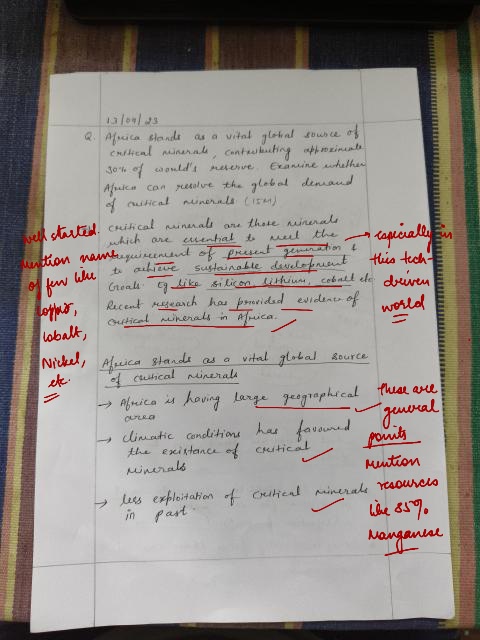 13/09/23
Q. Africa stands as a vital global source of
critical minerals, contributing approximate
30% of world's reserve. Examine whether
Africa can resolve the global demand
of critical minerals (15M)
critical minerals are those minerals
which are essential to meet the
requirement of present generation &
to achieve sustainable development
Goals. eg like silicon, lithium, cobalt etc.
Recent research has provided evidence of
critical minerals in Africa.
well started.
Mention name
of few like
copper,
cobalt,
Nickel,
etc.
especially in
this tech-
driven
world
Africa stands as a vital global source
of critical minerals
→ Africa is having large geographical
area
→ climatic conditions has favoured
the existance of critical
minerals
→ less exploitation of critical minerals
in past.
These are
general
points
Mention
resources
like 85%
Manganese